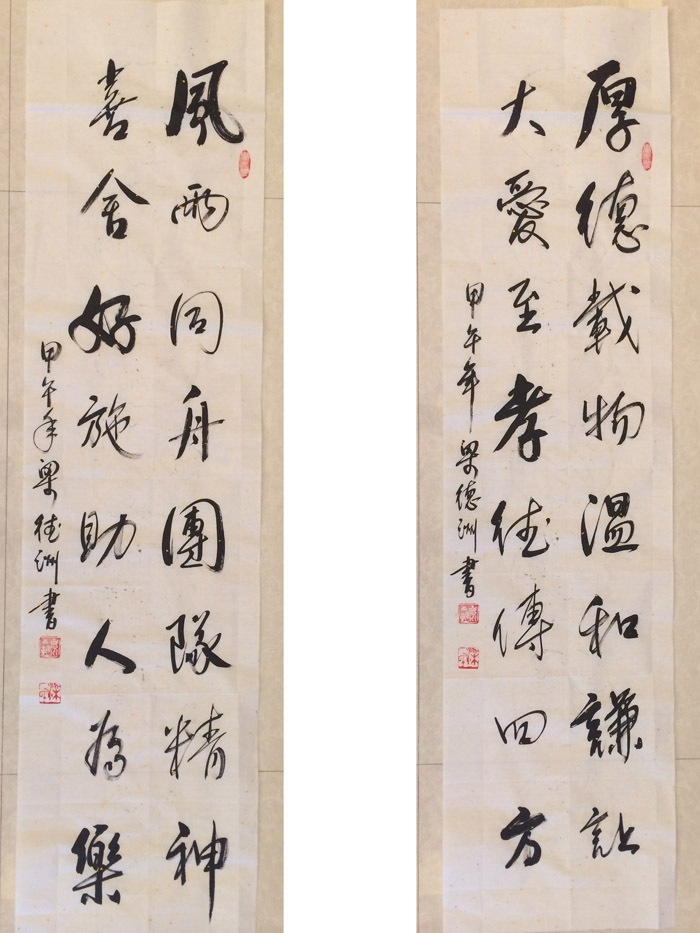 厚德載物溫和謙讓
大愛至孝德傳四方
甲午年梁德洲書
風雨同舟團隊精神
喜舍好施助人為樂
甲午年梁德洲書